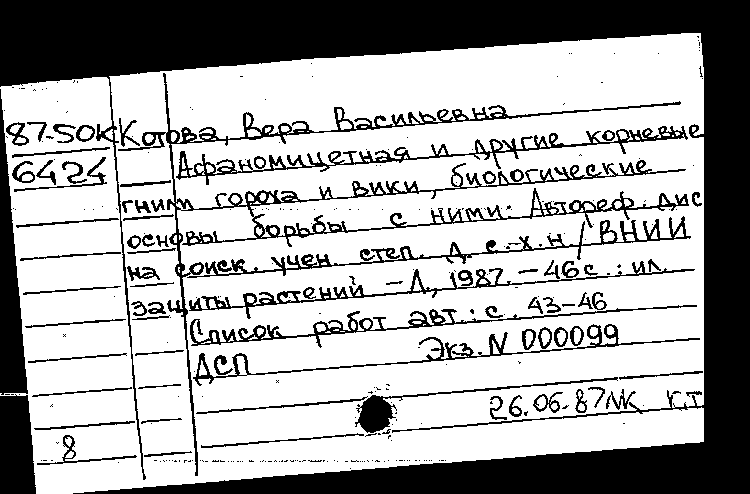 87-50К Котова, Вера Васильевна
6424 Афаномицетная и другие корневые
гнили гороха и вики, биологические
основы борьбы с ними: Автореф. дис
на соиск. учен. степ. д. с.-х. н / ВНИИ
защиты растений - Л., 1987. - 46 с. : ил.
Список работ авт.: с. 43-46
ДСП Экз. N 000099
26.06-87 К.Т
8